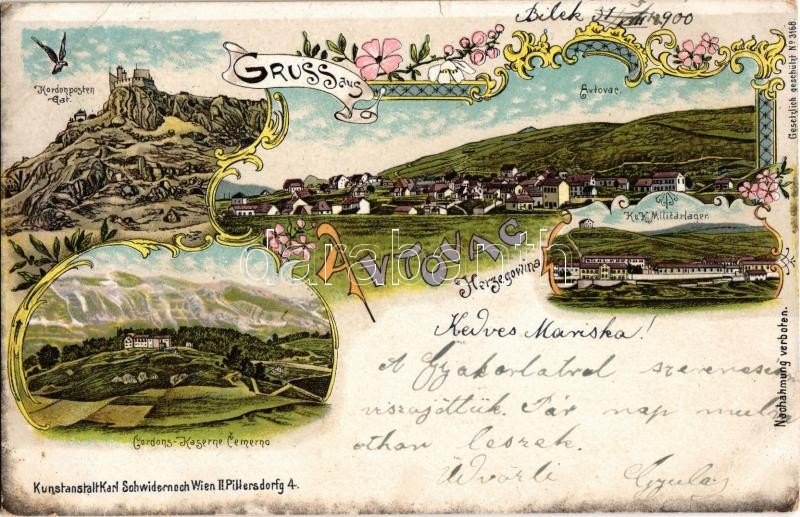 Bilek 31/VIII 1900
Kordonposten
Gat.
GRUSS aus
Avtovac.
Gesetzlich geschützt No 3168
K.u.K. Militärlager.
AVTOVAC
Herzegowina
darabanth.com
Kedves Mariska!
A Gyakorlatról szerencsésen
visszajöttük. Pár nap mulva
othon leszek.
Üdvözli Gyula
Cordons-Kaserne Cemerno
Nachahmung verboten.
Kunstanstalt Karl Schwidernoch Wien II. Pillersdorfg 4.